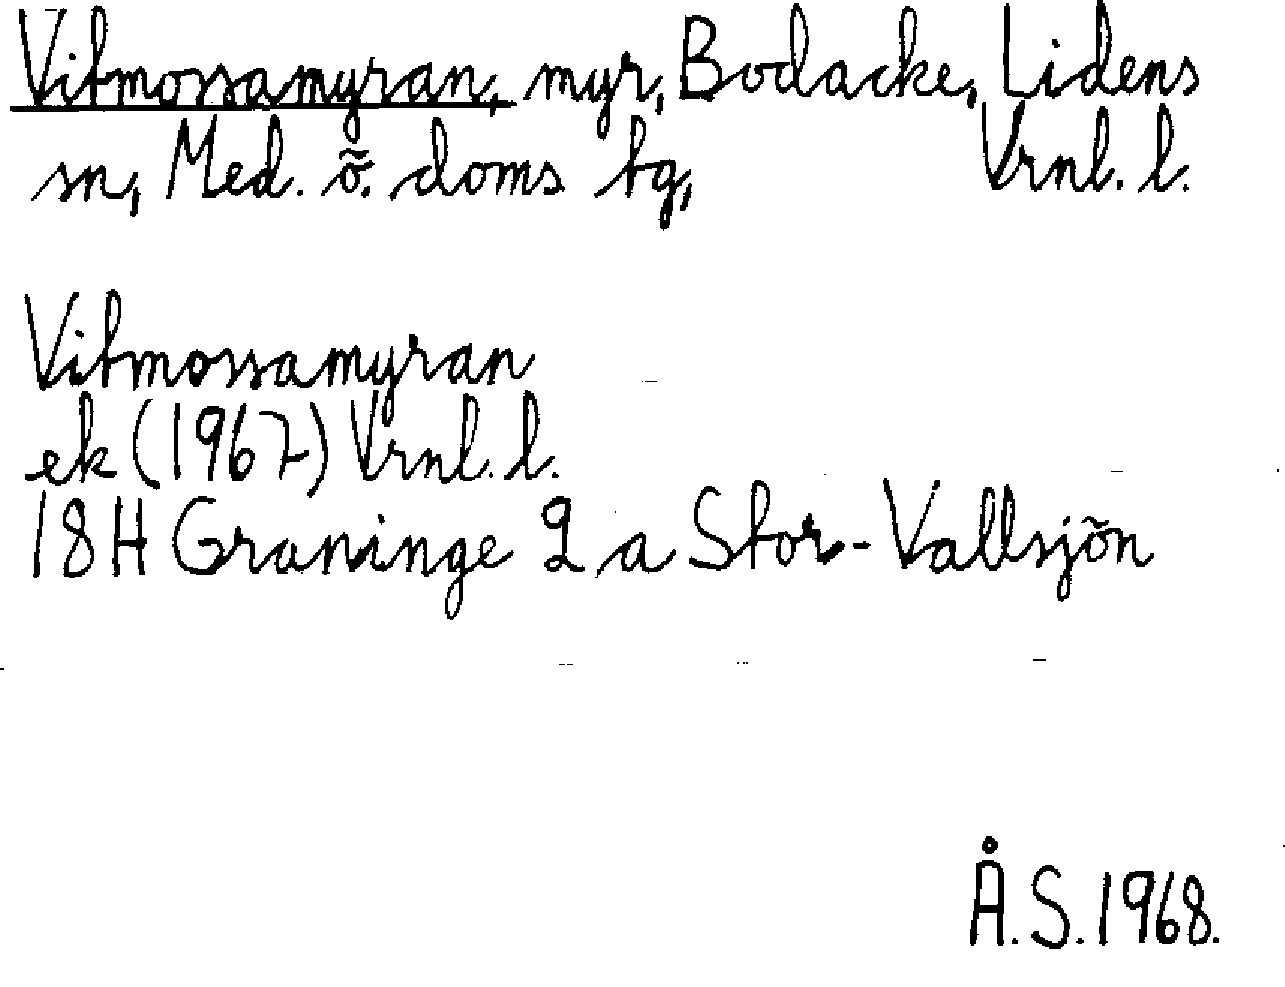 Vitmossamyran, myr, Bodacke, Lidens
sn, Med. ö. doms tg, Vrnl. l.
Vitmossamyran
ek (1967) Vrnl. l.
18H Graninge 2 a Stor-Vallsjön
Å.S. 1968.